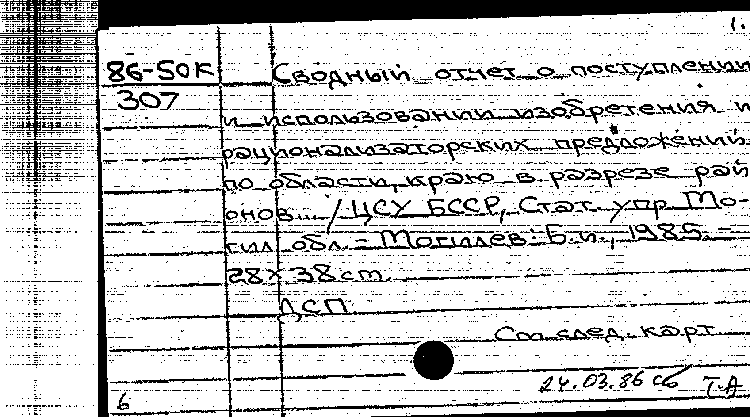 1.
86-50К Сводный отчет о поступлении
307
и использовании изобретения и
рационализаторских предложений
по области, краю в разрезе рай
онов... / ЦСУ БССР, Стат. упр. Мо-
гил. обл. - Могилев: Б.и., 1985. -
28 × 38 cm.
ДСП.
См. след. карт
24.03.86 сб Т.А
6